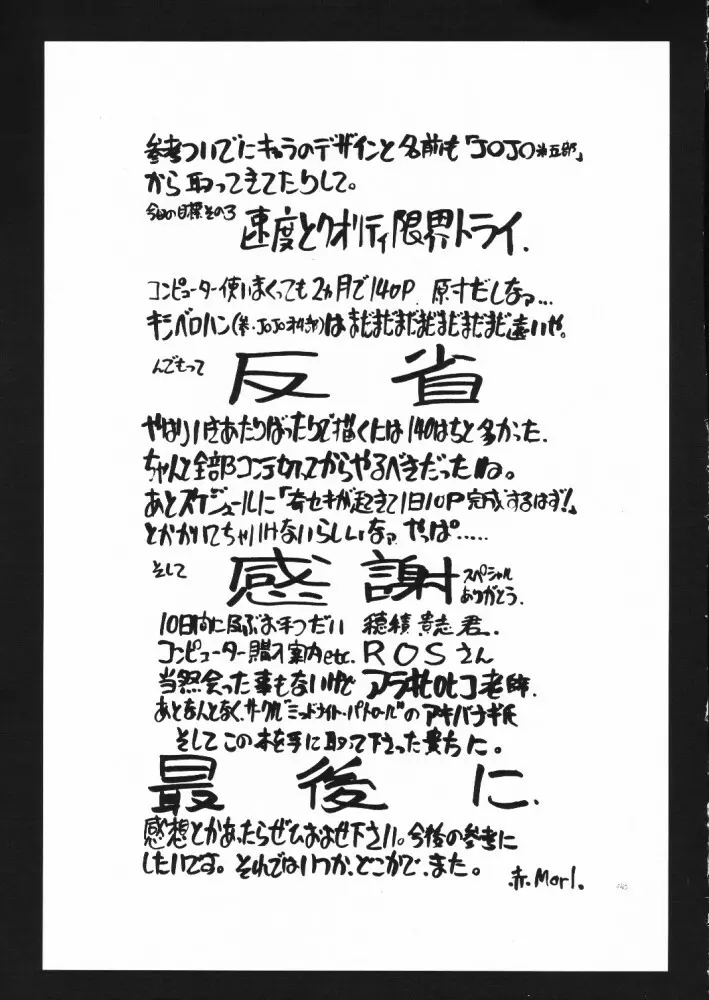 参考ついでにキャラのデザインと名前も「JOJO第五部」
から取ってきてたりして。
今回の目標その3
速度とクオリティ限界トライ.
コンピューター使いまくっても2ヵ月で140P. 原寸だしなァ…
キシベロハン(参・JOJO)はまだまだまだまだまだまだまだ遠いや。
んでもって
反省
やはり行きあたりばったりで描くには140はちと多かった.
ちゃんと全部コンテ切ってからやるべきだったね。
あとスケジュールに「奇セキが起きて1日10P完成するはず!」
とかかいてちゃいけないらしいなァ やっぱ.....
そして
感謝
スペシャル
ありがとう.
10日間に及ぶお手つだい 穂積貴志君.
コンピューター購入案内etc. ROSさん
当然会った事もないけど アラキヒロヒコ老師.
あとなんとなく、サークル"ミッドナイト・パトロール"のアキバナギ氏
そしてこの本を手に取って下さった貴方に。
最後に.
感想とかあったらぜひおよせ下さい。今後の参考に
したいです。それではいつか、どこかで、また。
赤.Morl.